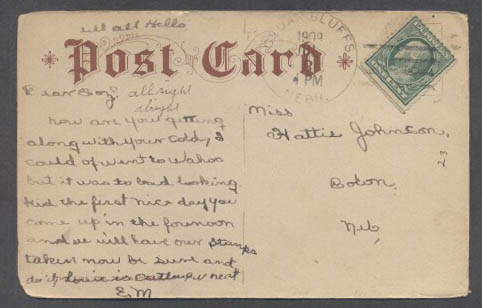 all Hello
Post Card
CEDAR BLUFFS
1909
PM
NEBR.
Dear Boz"
all right
alright
how are you getting
along with your cold, I
could of went to Wahoo
but it was to bad looking
kid the first nice day you
come up in the forenoon
and we will have our stamps
taken now be sure and
do it Louie is
E.M
Miss
Hattie Johnson,
Neb,
23